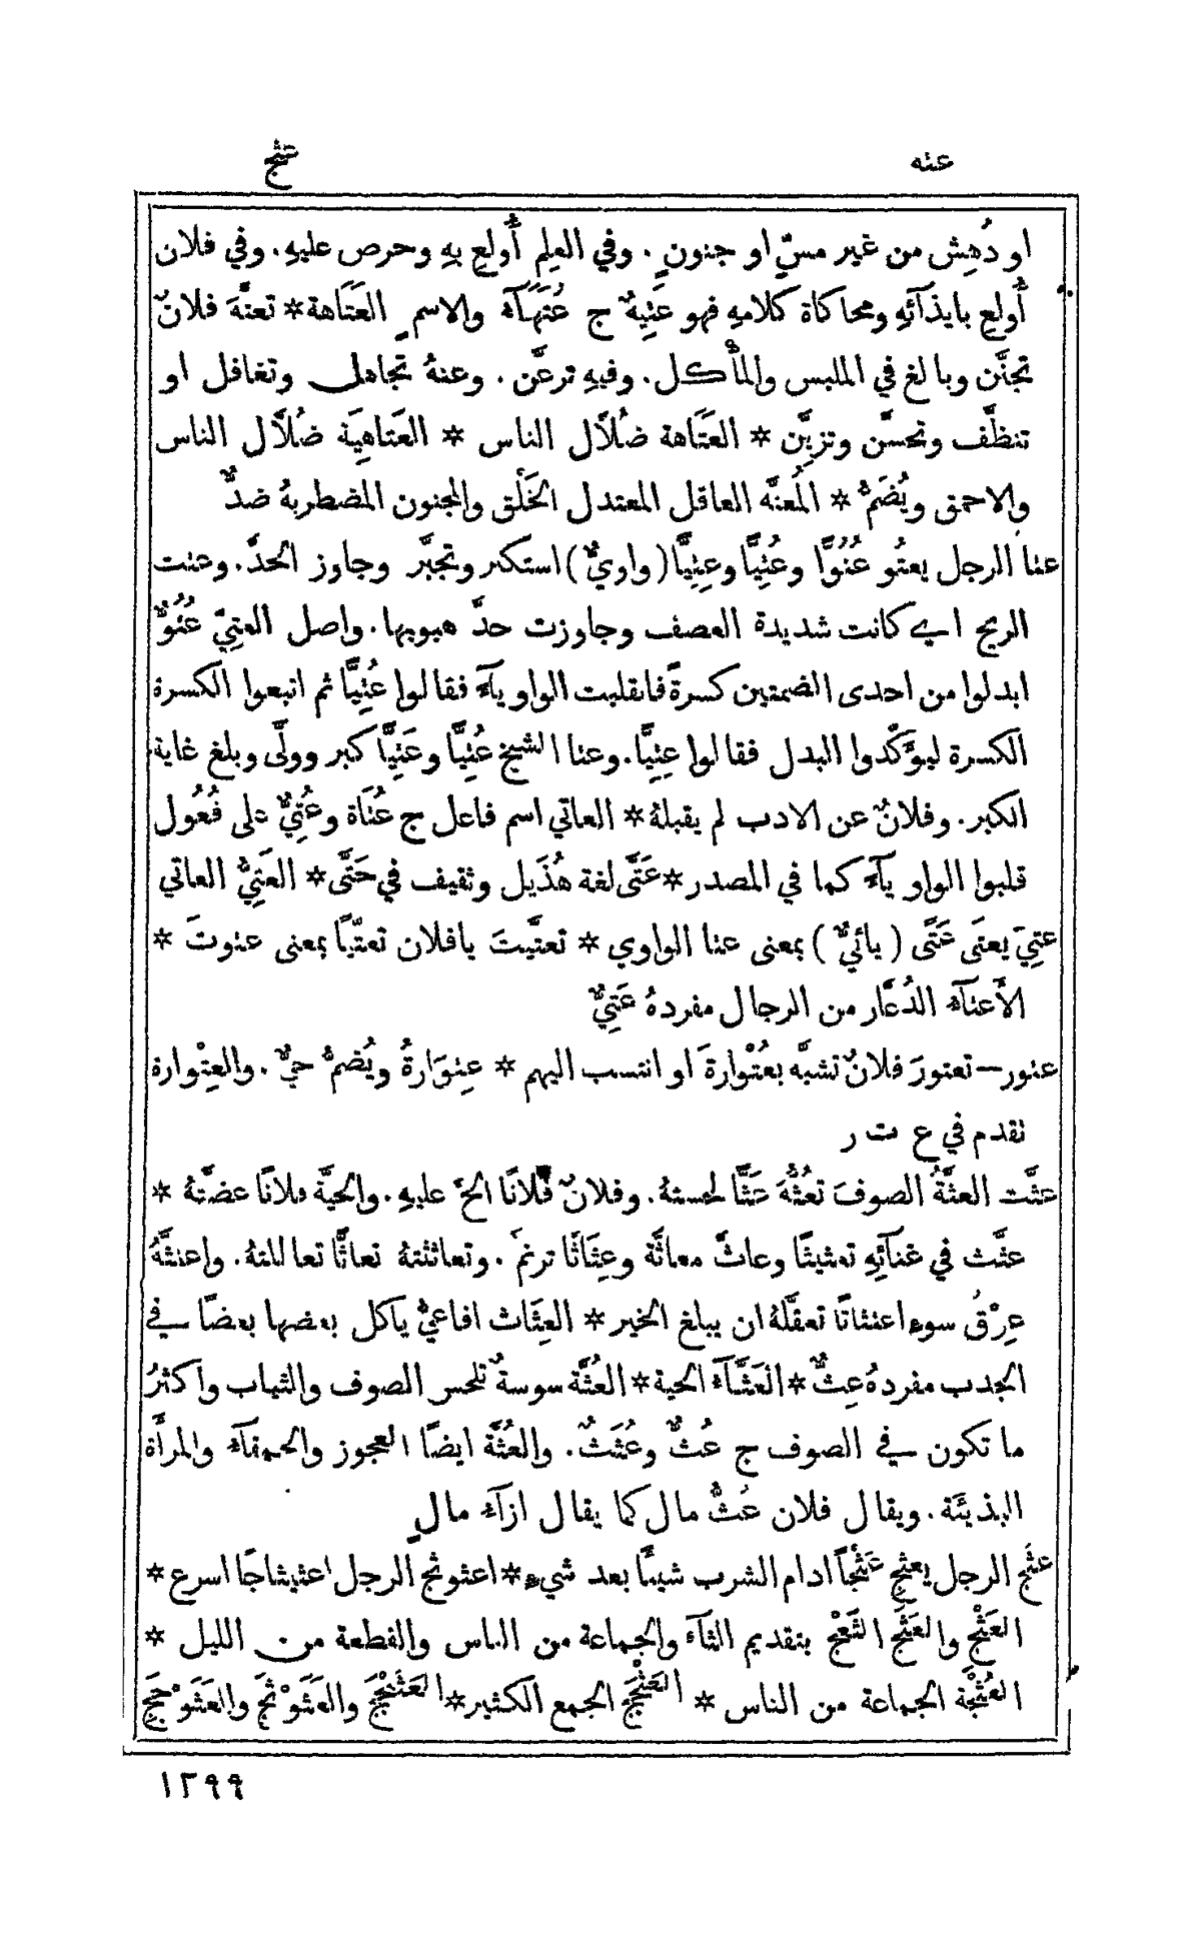 عته عثج
او دُهِش من غير مسٍّ او جنونٍ. وفي العِلم أُولع بهِ وحرص عليهِ. وفي فلان
أُولع بايذآئهِ ومحاكاة كلامهِ فهو عَتِيهٌ ج عُتَهَآءُ والاسم العَتَاهة * تعتَّهَ فلانٌ
تجنَّن وبالغ في الملبس والمأْكل. وفيهِ ترعَّن. وعنهُ تجاهل وتغافل او
تنظَّف وتحسَّن وتزيَّن * العَتَاهة ضُلاَّل الناس * العَتَاهِيَة ضُلاَّل الناس
والاحمق ويُضَمُّ * المُعتَّه العاقل المعتدل الخَلْق والمجنون المضطربهُ ضدٌّ
عتا الرجل يعتُو عُتُوًّا وعُتِيًّا وعِتِيًّا (واويٌّ) استكبر وتجبَّر وجاوز الحدَّ. وعتت
الريح اي كانت شديدة العصف وجاوزت حدَّ هبوبها. واصل العتِيّ عُتُوٌّ
ابدلوا من احدى الضمتين كسرةً فانقلبت الواو يآءً فقالوا عُتِيًّا ثم اتبعوا الكسرة
الكسرة ليوَّكِّدوا البدل فقالوا عِتِيًّا. وعتا الشيخ عُتِيًّا وعَتِيًّا كبر وولَّى وبلغ غاية
الكبر. وفلانٌ عن الادب لم يقبلهُ * العاتي اسم فاعل ج عُتَاة وعُتِيٌّ على فُعُول
قلبوا الواو يآءً كما في المصدر * عَتَّى لغة هُذَيل وثقيف في حَتَّى * العَتِيُّ العاتي
عتِيَ يعتَى عَتًى (يائيٌّ) بمعنى عتا الواوي * تعتَّيتَ يافلان تعتّيًا بمعنى عتوتَ *
الأَعتآءُ الدُعَّار من الرجال مفردهُ عَتِيٌّ
عتور — تعتورَ فلانٌ تشبَّه بعُتْوارةَ او انتسب اليهم * عِتوَارةُ ويُضمُّ حيٌّ. والعِتْوارة
تقدم في ع ت ر
عثَّت العثَّةُ الصوفَ تعُثُّهُ عَثًّا لحستهُ. وفلانٌ فلانًا الحَّ عليهِ. والحيَّة فلانًا عضَّتهُ *
عثَّث في غنآئهِ تعثيثًا وعاثَّ معاثَّة وعِثَاثًا ترنم. وتعاثثتهُ تعاثًّا تعاللتهُ. واعتثَّهُ
عِرْقُ سوءٍ اعتثاثًا تعقَّلهُ ان يبلغ الخير * العِثَاث افاعيُّ ياكل بعضها بعضًا في
الجدب مفردهُ عِثٌّ * العَثَّآءُ الحية * العُثَّة سوسةٌ تلحس الصوف والثياب واكثرُ
ما تكون في الصوف ج عُثٌّ وعُثَثٌ. والعُثَّة ايضًا العجوز والحمقآءُ والمرأَة
البذيئَة. ويقال فلان عُثُّ مال كما يقال ازآءُ مالٍ
عثَج الرجل يعثِج عَثْجاً ادام الشرب شيئًا بعد شيءٍ * اعثوثج الرجل اعثيثاجًا اسرع *
العَثْج والعَثَج الثَعْج بتقديم الثآءِ والجماعة من الناس والقطعة من الليل *
العُثْجَة الجماعة من الناس * العَثْجَج الجمع الكثير * العَثَنْجَج والعَثَوْثَج والعَثَوْجَج
١٢٩٩